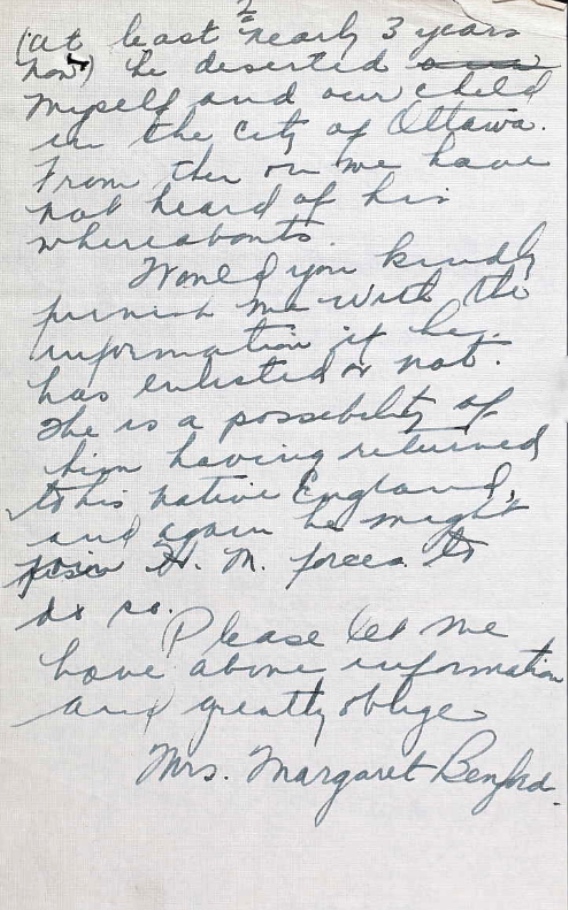 2
(at least nearly 3 years
now) he deserted
myself and our child
in the city of Ottawa.
From then on we have
not heard of his
whereabouts.
Would you kindly
furnish me with the
information if he
has enlisted or not.
The is a possibility of
him having returned
to his native England,
and again he might
join H. M. forces to
do so.
Please let me
have above information
and greatly oblige
Mrs. Margaret Benford.